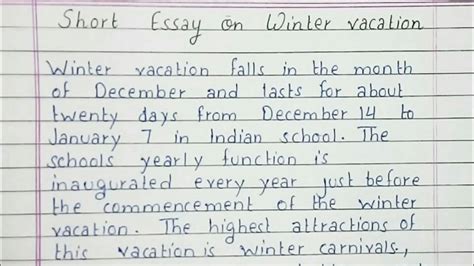 Short Essay on Winter vacation
Winter vacation falls in the month
of December and lasts for about
twenty days from December 14 to
January 7 in Indian school. The
schools yearly function is
inaugurated every year just before
the commencement of the winter
vacation. The highest attractions of
this vacation is winter carnivals,